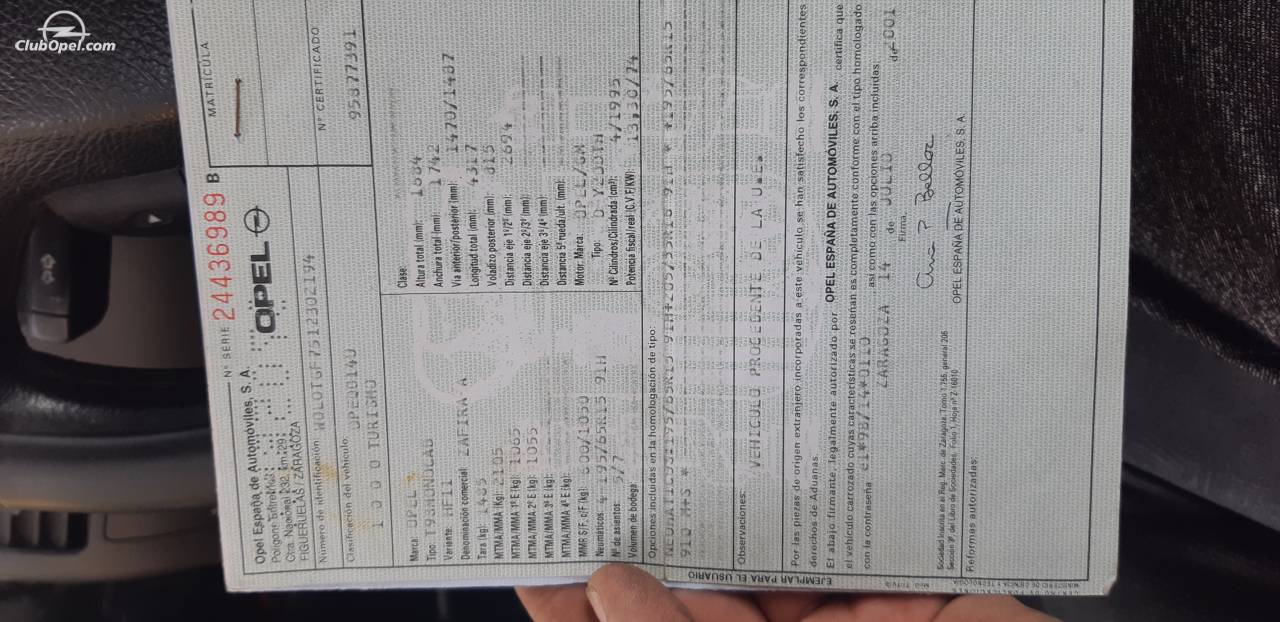 ClubOpel.com
Nº SERIE 24436989 B
MATRICULA
Opel España de Automóviles, S. A.
OPEL
Polígono Entrerríos
Ctra. Nacional 232, km. 29
FIGUERUELAS/ZARAGOZA
Nº CERTIFICADO
95877391
Número de identificación: W0L0TGF7512302194
Clasificación del vehículo:
1 0 0 0 TURISMO
Marca: OPEL
Tipo: T98MONOCAB
Variante:
Denominación comercial: ZAFIRA-A
Tara (kg): 1485
MTMA/MMA (Kg): 2105
MTMA/MMA 1º E (kg): 1065
MTMA/MMA 2º E (kg): 1055
MTMA/MMA 3º E (kg):
MTMA/MMA 4º E (kg):
MMR S/F, c/F (kg):
Neumáticos: 4 195/65R15 91H
Nº de asientos: 5/7
Volumen de bodega:
Clase:
Altura total (mm): 1684
Anchura total (mm): 1742
Vía anterior/posterior (mm): 1470/1487
Longitud total (mm): 4317
Voladizo posterior (mm): 815
Distancia eje 1º/2º (mm): 2694
Distancia eje 2º/3º (mm):
Distancia eje 3º/4º (mm):
Distancia 5ª rueda/ult. (mm):
Motor: Marca: OPEL/GM
Tipo: D-Y20DTH
Nº Cilindros/Cilindrada (cm³): 4/1995
Potencia fiscal/real (C.V.F/KW): 13,30/74
Opciones incluidas en la homologación de tipo:
91Q M+S *
Observaciones:
VEHICULO PROCEDENTE DE LA U.E.
Por las piezas de origen extranjero incorporadas a este vehículo se han satisfecho los correspondientes
derechos de Aduanas.
El abajo firmante, legalmente autorizado por OPEL ESPAÑA DE AUTOMÓVILES, S. A. certifica que
el vehículo carrozado cuyas características se reseñan es completamente conforme con el tipo homologado
con la contraseña e1*98/14*0110, así como con las opciones arriba incluidas.
ZARAGOZA 14 de JULIO de 2001
Firma,
OPEL ESPAÑA DE AUTOMÓVILES, S. A.
Sociedad Inscrita en el Reg. Merc. de Zaragoza, Tomo 1.755, general 206
Sección 3ª, del Libro de Sociedades, Folio 1, Hoja nº Z-16010
Reformas autorizadas:
EJEMPLAR PARA EL USUARIO
MINISTERIO DE CIENCIA Y TECNOLOGIA